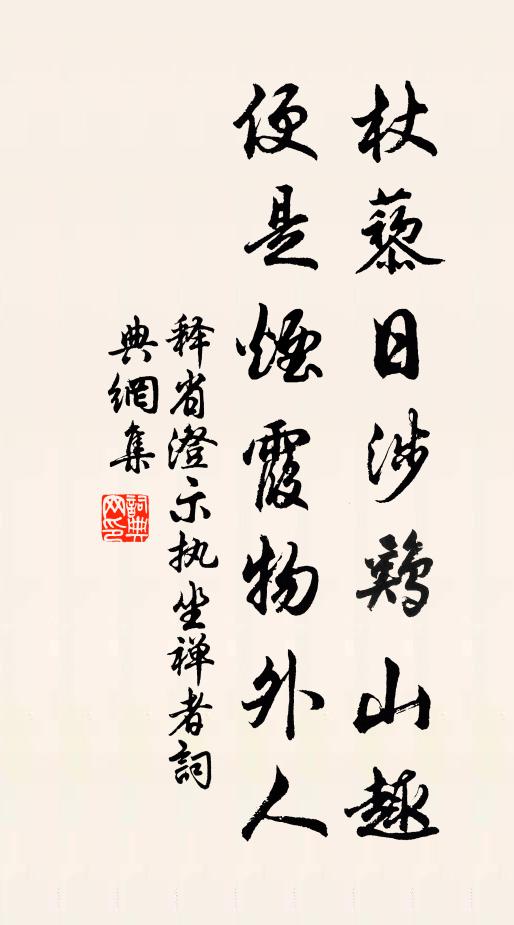 杖藜日涉鷄山趣
便是煙霞物外人
释省澄示执坐禅者詞
典網集
詞典
网印